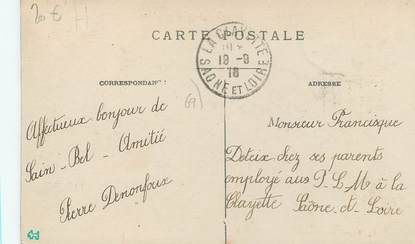 20 €
CARTE POSTALE
LA CLAYETTE
19-9
16
SAONE ET LOIRE
CORRESPONDANCE
ADRESSE
69)
Affectueux bonjour de
Sain-Bel-Amitié
Pierre Denonfoux
Monsieur Francisque
Deteix chez ses parents
employé aus P.L.M à la
Clayette Saône-et-Loire